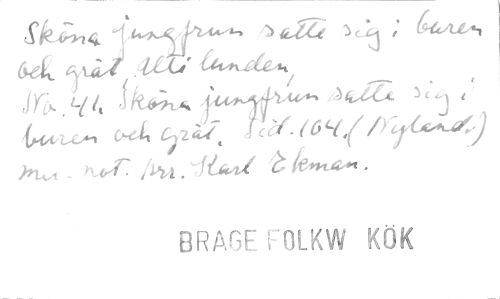 Sköna jungfrun satte sig i buren
och grät allt i lunden,
No. 41. Sköna jungfrun satte sig i
buren och grät. Sid. 104. (Nyland.)
m. not. arr. Karl Ekman.
BRAGE FOLKW KÖK